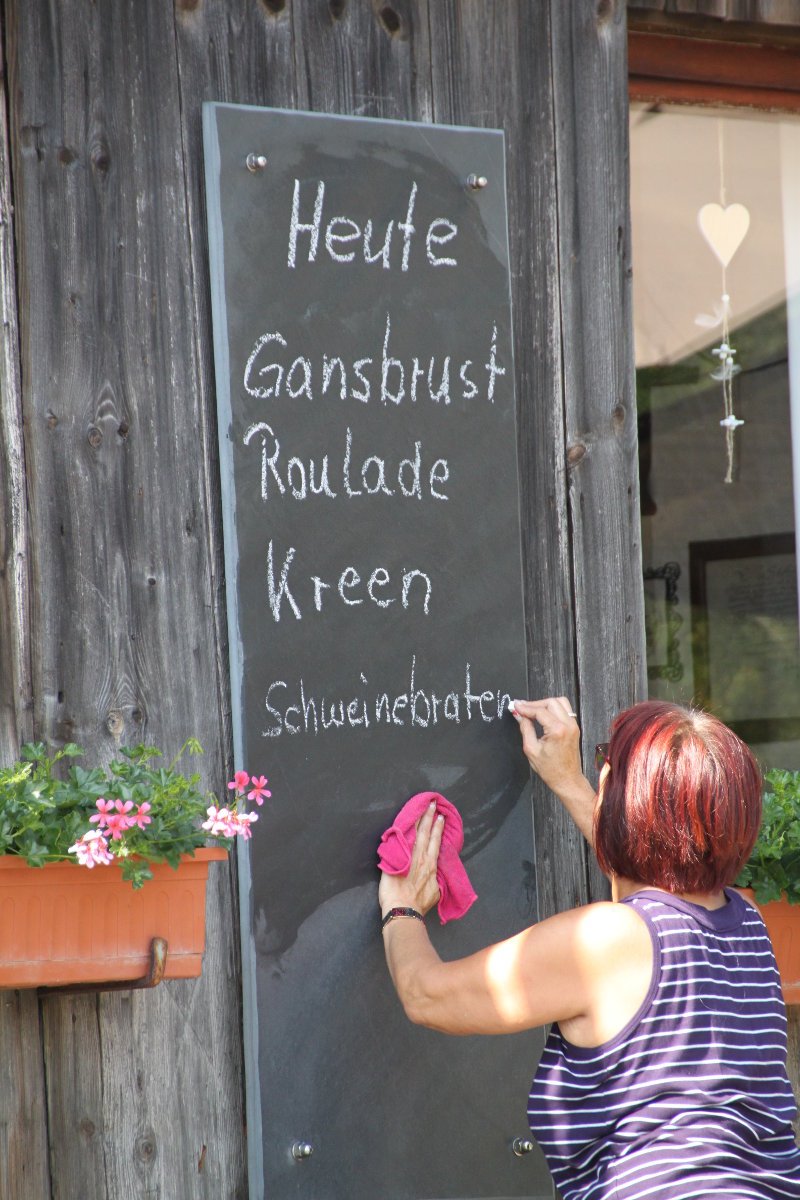 Heute
Gansbrust
Roulade
Kreen
Schweinebraten